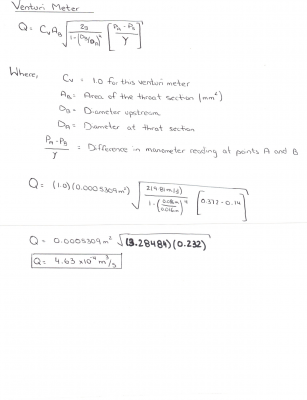 Venturi Meter
Q = CvAB √ 2g / 1-(DB/DA)^4 [PA - PB / γ]
Where,
Cv = 1.0 for this venturi meter
AB = Area of the throat section (mm²)
DB = Diameter upstream
DA = Diameter at throt section
PA - PB / γ = Difference in manometer reading at points A and B
Q = (1.0)(0.0005309m²) √ 2(9.81m/s) / 1-( / )^4 [0.372-0.14]
Q = 0.0005309m² √ (3.28484)(0.232)
Q = 4.63 x10⁻⁴ m³/s